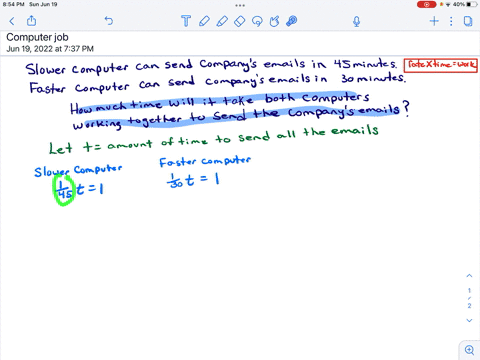 8:54 PM Sun Jun 19
40%
Computer job
Jun 19, 2022 at 7:37 PM
Slower computer can send company's emails in 45 minutes.
rate x time = work
Faster computer can send company's emails in 30 minutes.
How much time will it take both computers
working together to send the company's emails?
Let t = amount of time to send all the emails
Slower Computer
Faster computer
1/45 t = 1
1/30 t = 1
1
2